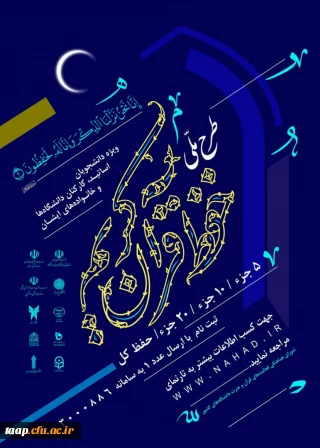 إِنَّا نَحْنُ نَزَّلْنَا الذِّكْرَ وَإِنَّا لَهُ لَحَافِظُونَ
طرح ملی
حفظ قرآن کریم
ویژه دانشجویان
اساتید، کارکنان دانشگاه‌ها
و خانواده‌های ایشان
۵ جزء / ۱۰ جزء / ۲۰ جزء / حفظ کل
ثبت نام با ارسال عدد ۱ به سامانه
جهت کسب اطلاعات بیشتر به تارنمای
WWW.NAHAD.IR
مراجعه نمایید.
taap.cfu.ac.ir